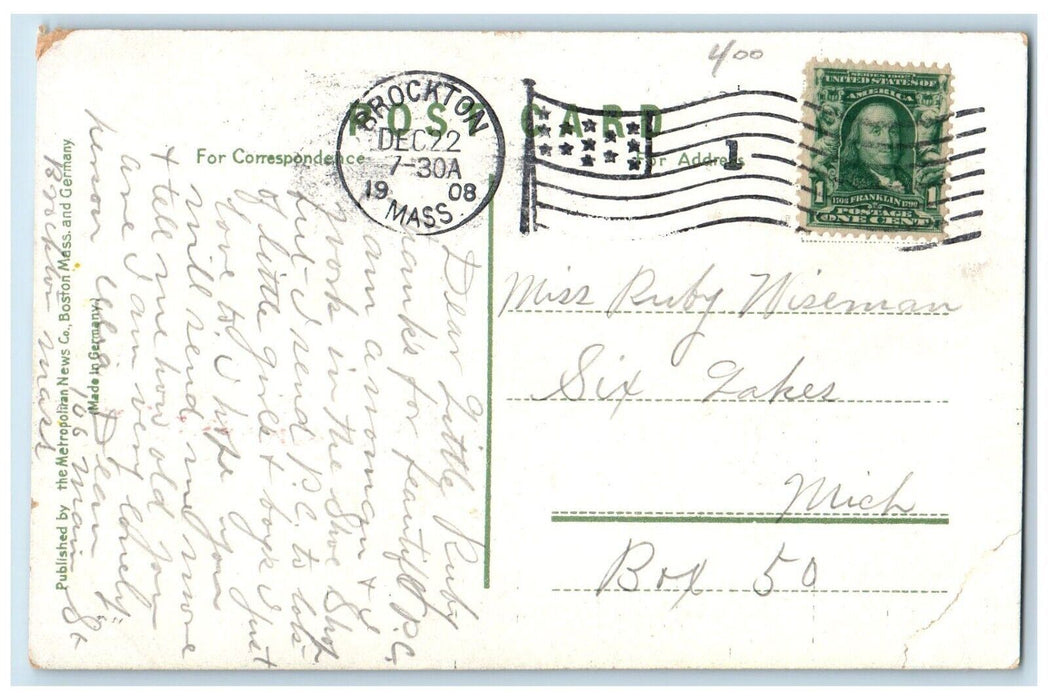 400
POST CARD
For Correspondence
For Address
BROCKTON
DEC 22
7-30A
1908
MASS.
1
SERIES 1902
UNITED STATES OF
AMERICA
1706 FRANKLIN 1790
POSTAGE
1 ONE CENT 1
Miss Ruby Wiseman
Six Lakes
Mich
Box 50
Dear Little Ruby
thanks for beautiful P.C.
I am a woman & I
work in the Shoe Shop
but I send P.C. to lots
of little girls & boys I Just
love to, I hope you
will send me more
& tell me how old you
are I am very lonely
166 Main St
Brockton Mass
Published by the Metropolitan News Co., Boston Mass. and Germany
(Made in Germany)